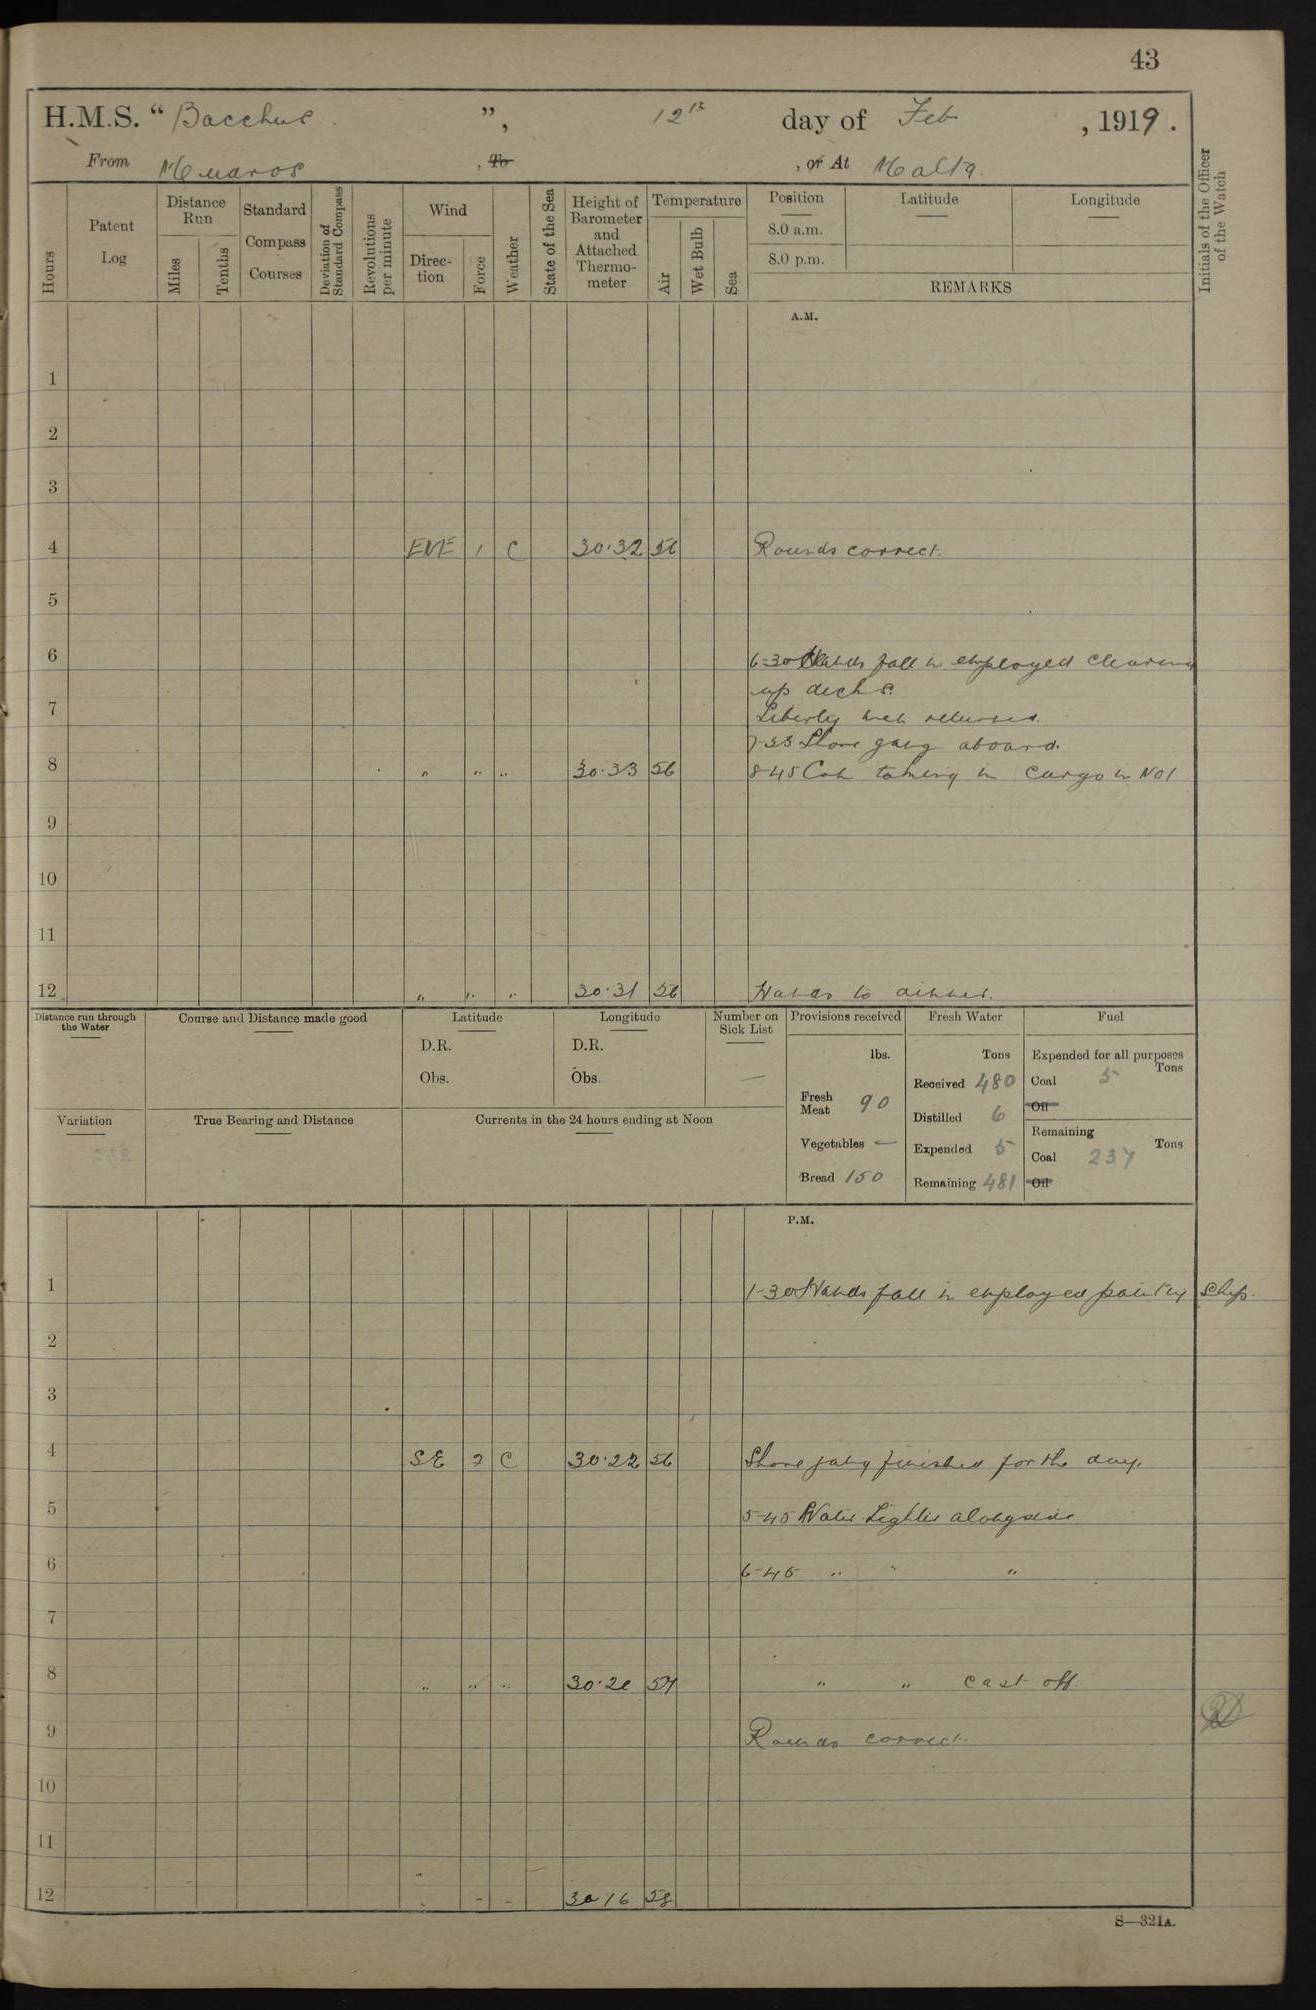 43
H.M.S. “ Bacchus . ”, 12th day of Feb , 1919 .
From Mudros , To , or At Malta.
Hours
Patent Log
Distance Run
Miles
Tenths
Standard Compass Courses
Deviation of Standard Compass
Revolutions per minute
Wind
Direction
Force
Weather
State of the Sea
Height of Barometer and Attached Thermometer
Temperature
Air
Wet Bulb
Sea
Position
8.0 a.m.
8.0 p.m.
Latitude
Longitude
REMARKS
Initials of the Officer of the Watch
A.M.
1
2
3
4 ENE 1 C 30·32 56 Rounds correct.
5
6 6-30 Hands fall in employed clearing
up decks.
7 Liberty men returned.
7-33 Shore gang aboard.
8 " " " 30·33 56 8-45 Com taking in cargo in No 1
9
10
11
12 " " " 30·31 56 Hands to dinner.
Distance run through the Water
Course and Distance made good
Latitude
D.R.
Obs.
Longitude
D.R.
Obs.
Number on Sick List —
Provisions received
lbs.
Fresh Meat 90
Vegetables —
Bread 150
Fresh Water
Tons
Received 480
Distilled 6
Expended 5
Remaining 481
Fuel
Expended for all purposes
Tons
Coal 5
Oil
Remaining
Tons
Coal 237
Oil
Variation
True Bearing and Distance
Currents in the 24 hours ending at Noon
P.M.
1 1-30 Hands fall in employed painting ship.
2
3
4 SE 2 C 30·22 56 Shore gang finished for the day.
5 5-45 Water Lighter alongside
6 6-45 " " "
7
8 " " " 30·20 57 " " cast off.
9 Rounds correct.
10
11
12 " - - 30 16 58
S—321A.